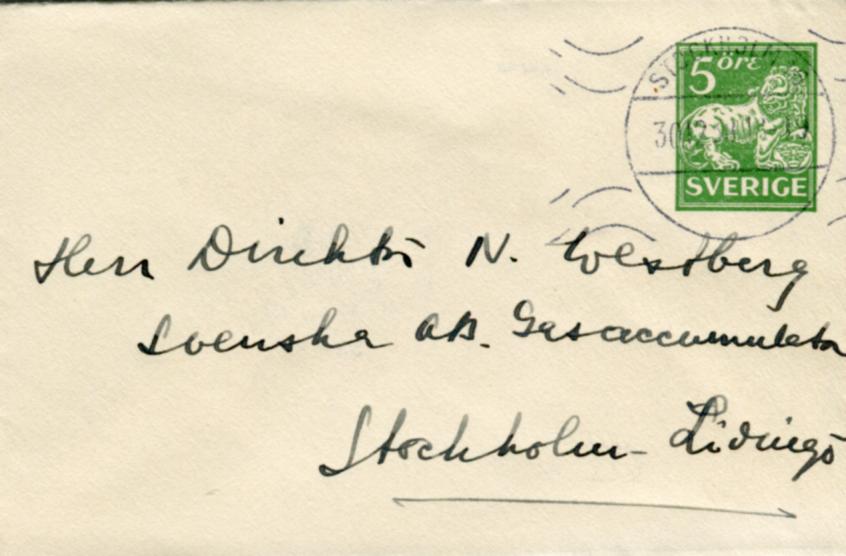 5 öre
SVERIGE
STOCKHOLM
Herr Direktör N. Westberg
Svenska AB. Gasaccumulator
Stockholm-Lidingö